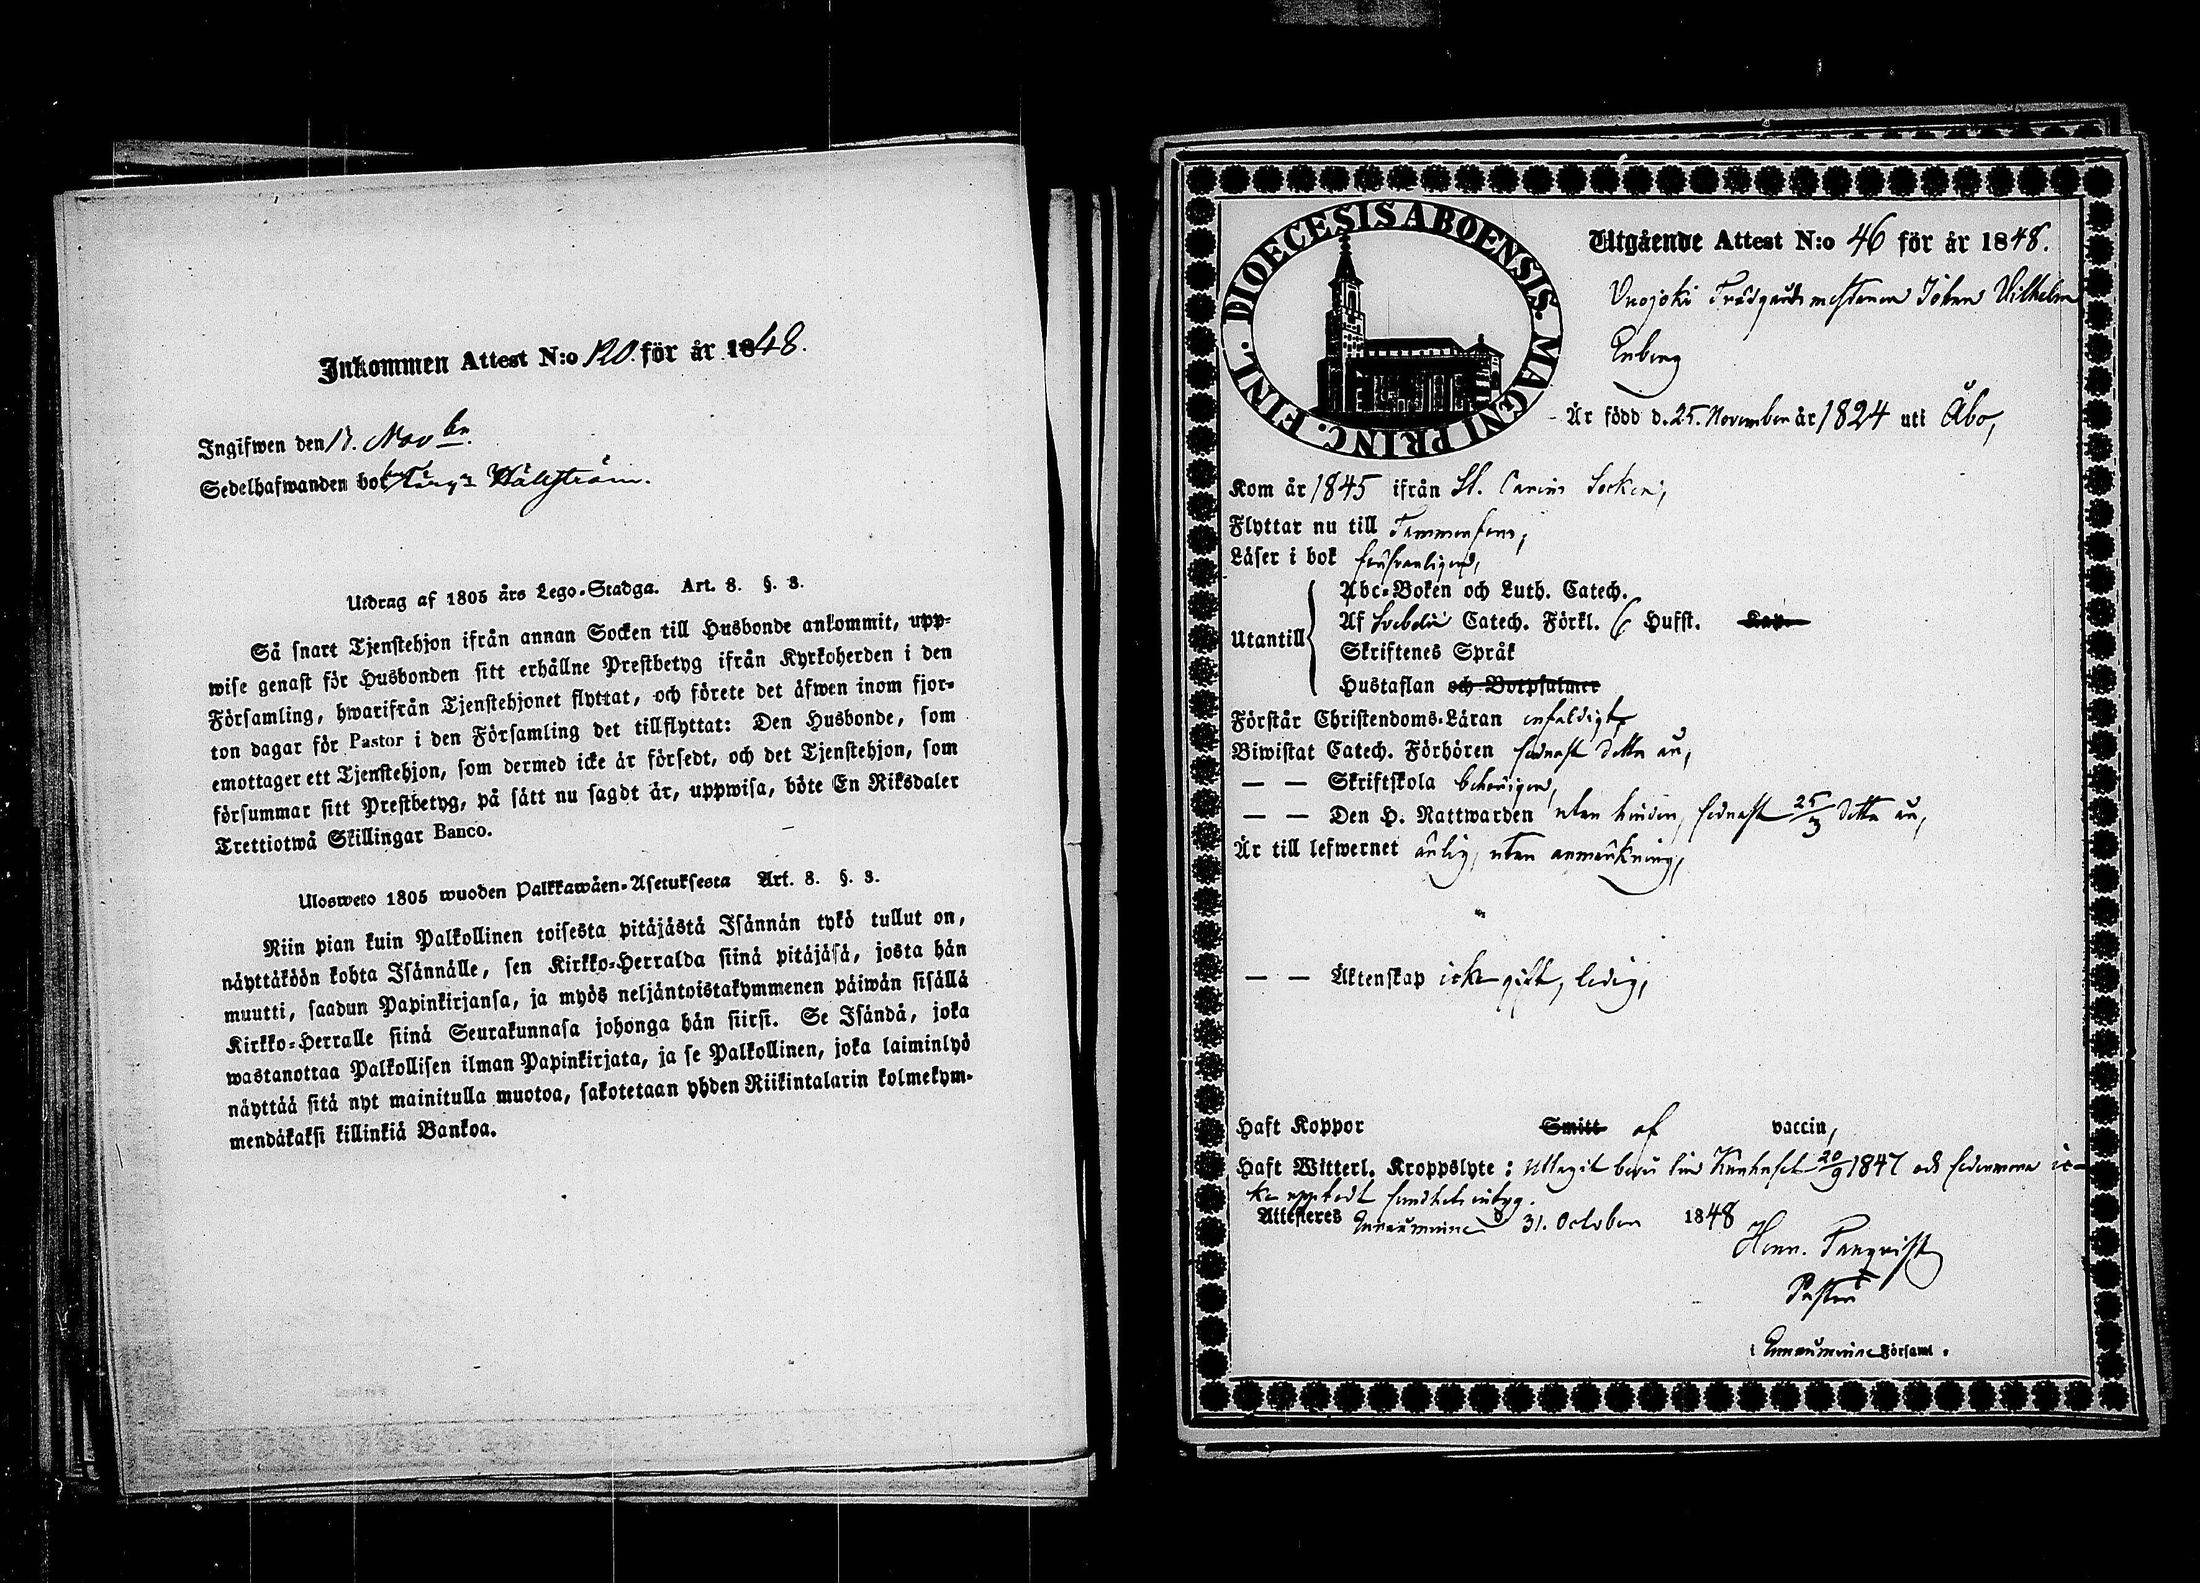 Inkommen Attest N:o 120. för år 1848.
Ingifwen den 17. Novbr.
Sedelhafwanden bor Hällström.
Utdrag af 1805 års Lego-Stadga. Art. 8. §. 3.
Så snart Tjenstehjon ifrån annan Socken till Husbonde ankommit, upp-
wise genast för Husbonden sitt erhållne Prestbetyg ifrån Kyrkoherden i den
Församling, hwarifrån Tjenstehjonet flyttat, och förete det äfwen inom fjor-
ton dagar för Pastor i den Församling det tillflyttat: Den Husbonde, som
emottager ett Tjenstehjon, som dermed icke är försedt, och det Tjenstehjon, som
försummar sitt Prestbetyg, på sätt nu sagdt är, uppwisa, böte En Riksdaler
Trettiotwå Skillingar Banco.
Ulosweto 1805 wuoden Palkkawäen-Asetuksesta Art. 8. §. 3.
Niin pian kuin Palkollinen toisesta pitäjästä Isännän tykö tullut on,
näyttäköön kohta Isännälle, sen Kirkko-Herralda siinä pitäjäsä, josta hän
muutti, saadun Papinkirjansa, ja myös neljäntoistakymmenen päiwän sisällä
Kirkko-Herralle siinä Seurakunnasa johonga hän siirsi. Se Isändä, joka
wastanottaa Palkollisen ilman Papinkirjata, ja se Palkollinen, joka laiminlyö
näyttää sitä nyt mainitulla muotoa, sakotetaan yhden Riikintalarin kolmekym-
mendäkaksi killinkiä Bankoa.
DIOECESIS ABOENSIS. MAGNI PRINC. FINL.
Utgående Attest N:o 46 för år 1848.
Trädgårdsmästaren Johan Wilhelm
Enberg
Är född d. 25. November år 1824 uti Åbo,
Kom år 1845 ifrån St. Carins Socken,
Flyttar nu till Tammerfors,
Läser i bok försvarligen,
Utantill
Abc-Boken och Luth. Catech.
Af Svebelii Catech. Förkl. 6 Hufst. Kap.
Skriftenes Språk
Hustaflan och Botpsalmer
Förstår Christendoms-Läran enfaldigt,
Biwistat Catech. Förhören sednast detta år,
— — Skriftskola behörigen,
— — Den H. Nattwarden utan hinder, sednast 25/3 detta år,
Är till lefwernet ärlig, utan anmärkning,
— — Äktenskap icke gift, ledig,
Haft Koppor Smitt af vaccin,
Haft Witterl. Kroppslyte: Uttagit betyg 20/9 1847 och sedermera ic-
ke upptedt sundhets intyg.
Attesteres Ennärminne d 31. October 1848
Henr. Tanqvist
Pastor
i Ennärminne Församl.